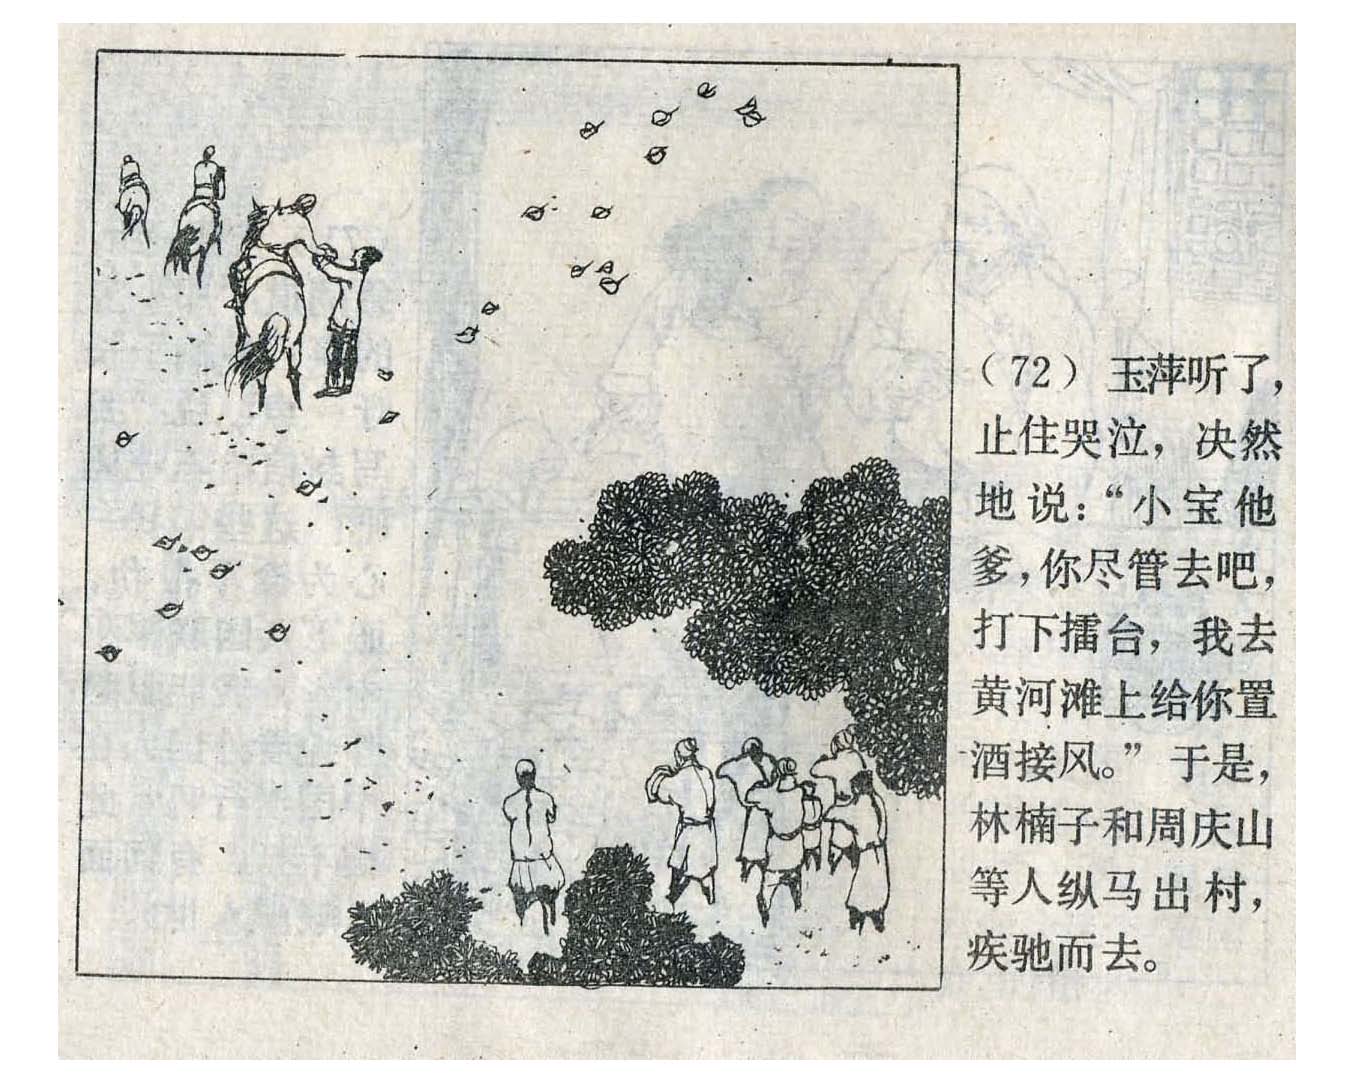 （72）玉萍听了，
止住哭泣，决然
地说：“小宝他
爹，你尽管去吧，
打下擂台，我去
黄河滩上给你置
酒接风。”于是，
林楠子和周庆山
等人纵马出村，
疾驰而去。